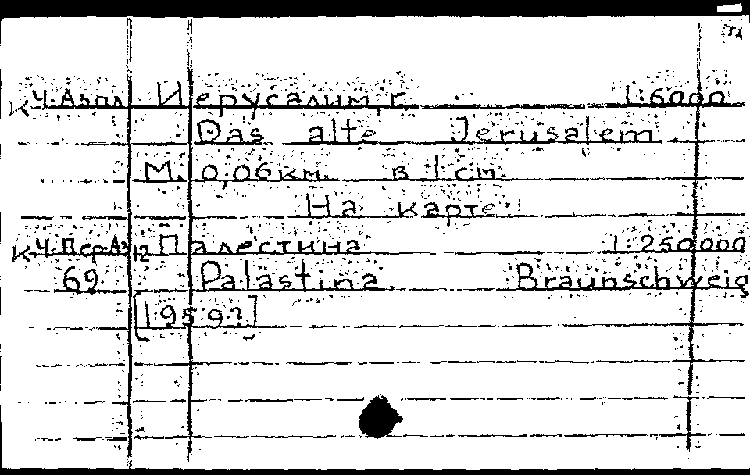 Иерусалим, г. 1:6000
Das alte Jerusalem
М. 0,06 км. в 1 см.
На карте:
Палестина 1:250000
69 Palastina. Braunschweig
[1959?]